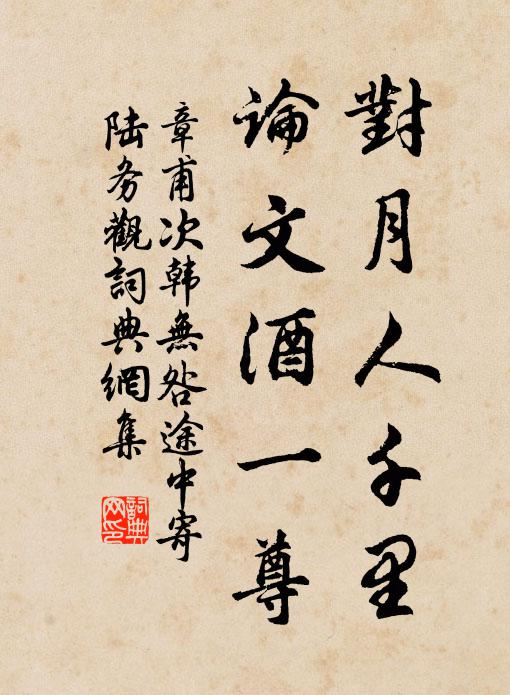 對月人千里
論文酒一尊
章甫次韩無咎途中寄
陆务觀詞典網集
詞典
网印